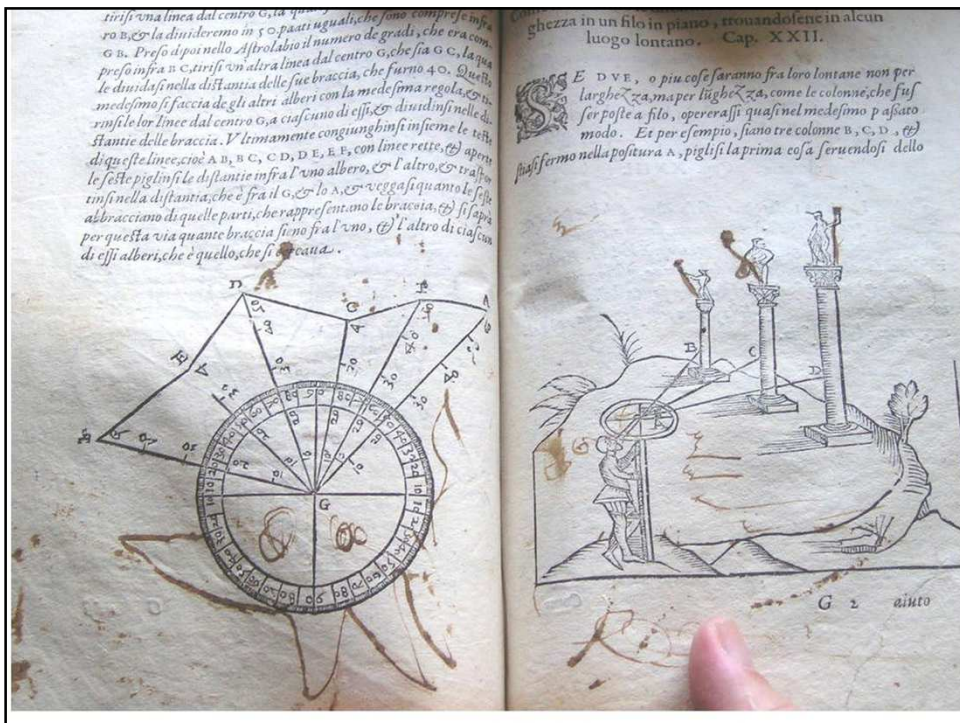 tirisi vna linea dal centro G, la
ro B, & la diuideremo in 50. paati uguali, che sono comprese infra
G B. Preso dipoi nello Astrolabio il numero de gradi, che era com-
preso infra B C, tirisi vn'altra linea dal centro G, che sia G C, la qua
le diuidasi nella distantia delle sue braccia, che furno 40. Questo
medesimo si faccia de gli altri alberi con la medesima regola, & ti-
rinsi le lor linee dal centro G, a ciascuno di essi, & diuidinsi nelle di-
stantie delle braccia. Vltimamente congiunghinsi insieme le teste
di queste linee, cioè A B, B C, C D, D E, E F, con linee rette, & aperte
le seste piglinsi le distantie infra l'vno albero, & l'altro, & traspor
tinsi nella distantia, che è fra il G, & lo A, & veggasi quanto le seste
abbracciano di quelle parti, che rappresentano le braccia, & si saprà
per questa via quante braccia sieno fra l'vno, & l'altro di ciascun
di essi alberi, che è quello, che si cercaua.
D
C
G
ghezza in un filo in piano, trouandosene in alcun
luogo lontano. Cap. XXII.
SE DVE, o piu cose saranno fra loro lontane non per
larghezza, ma per lũghezza, come le colonne, che fus
ser poste a filo, operarassi quasi nel medesimo passato
modo. Et per esempio, siano tre colonne B, C, D, &
stiasi fermo nella positura A, piglisi la prima cosa seruendosi dello
B
C
D
G 2 aiuto